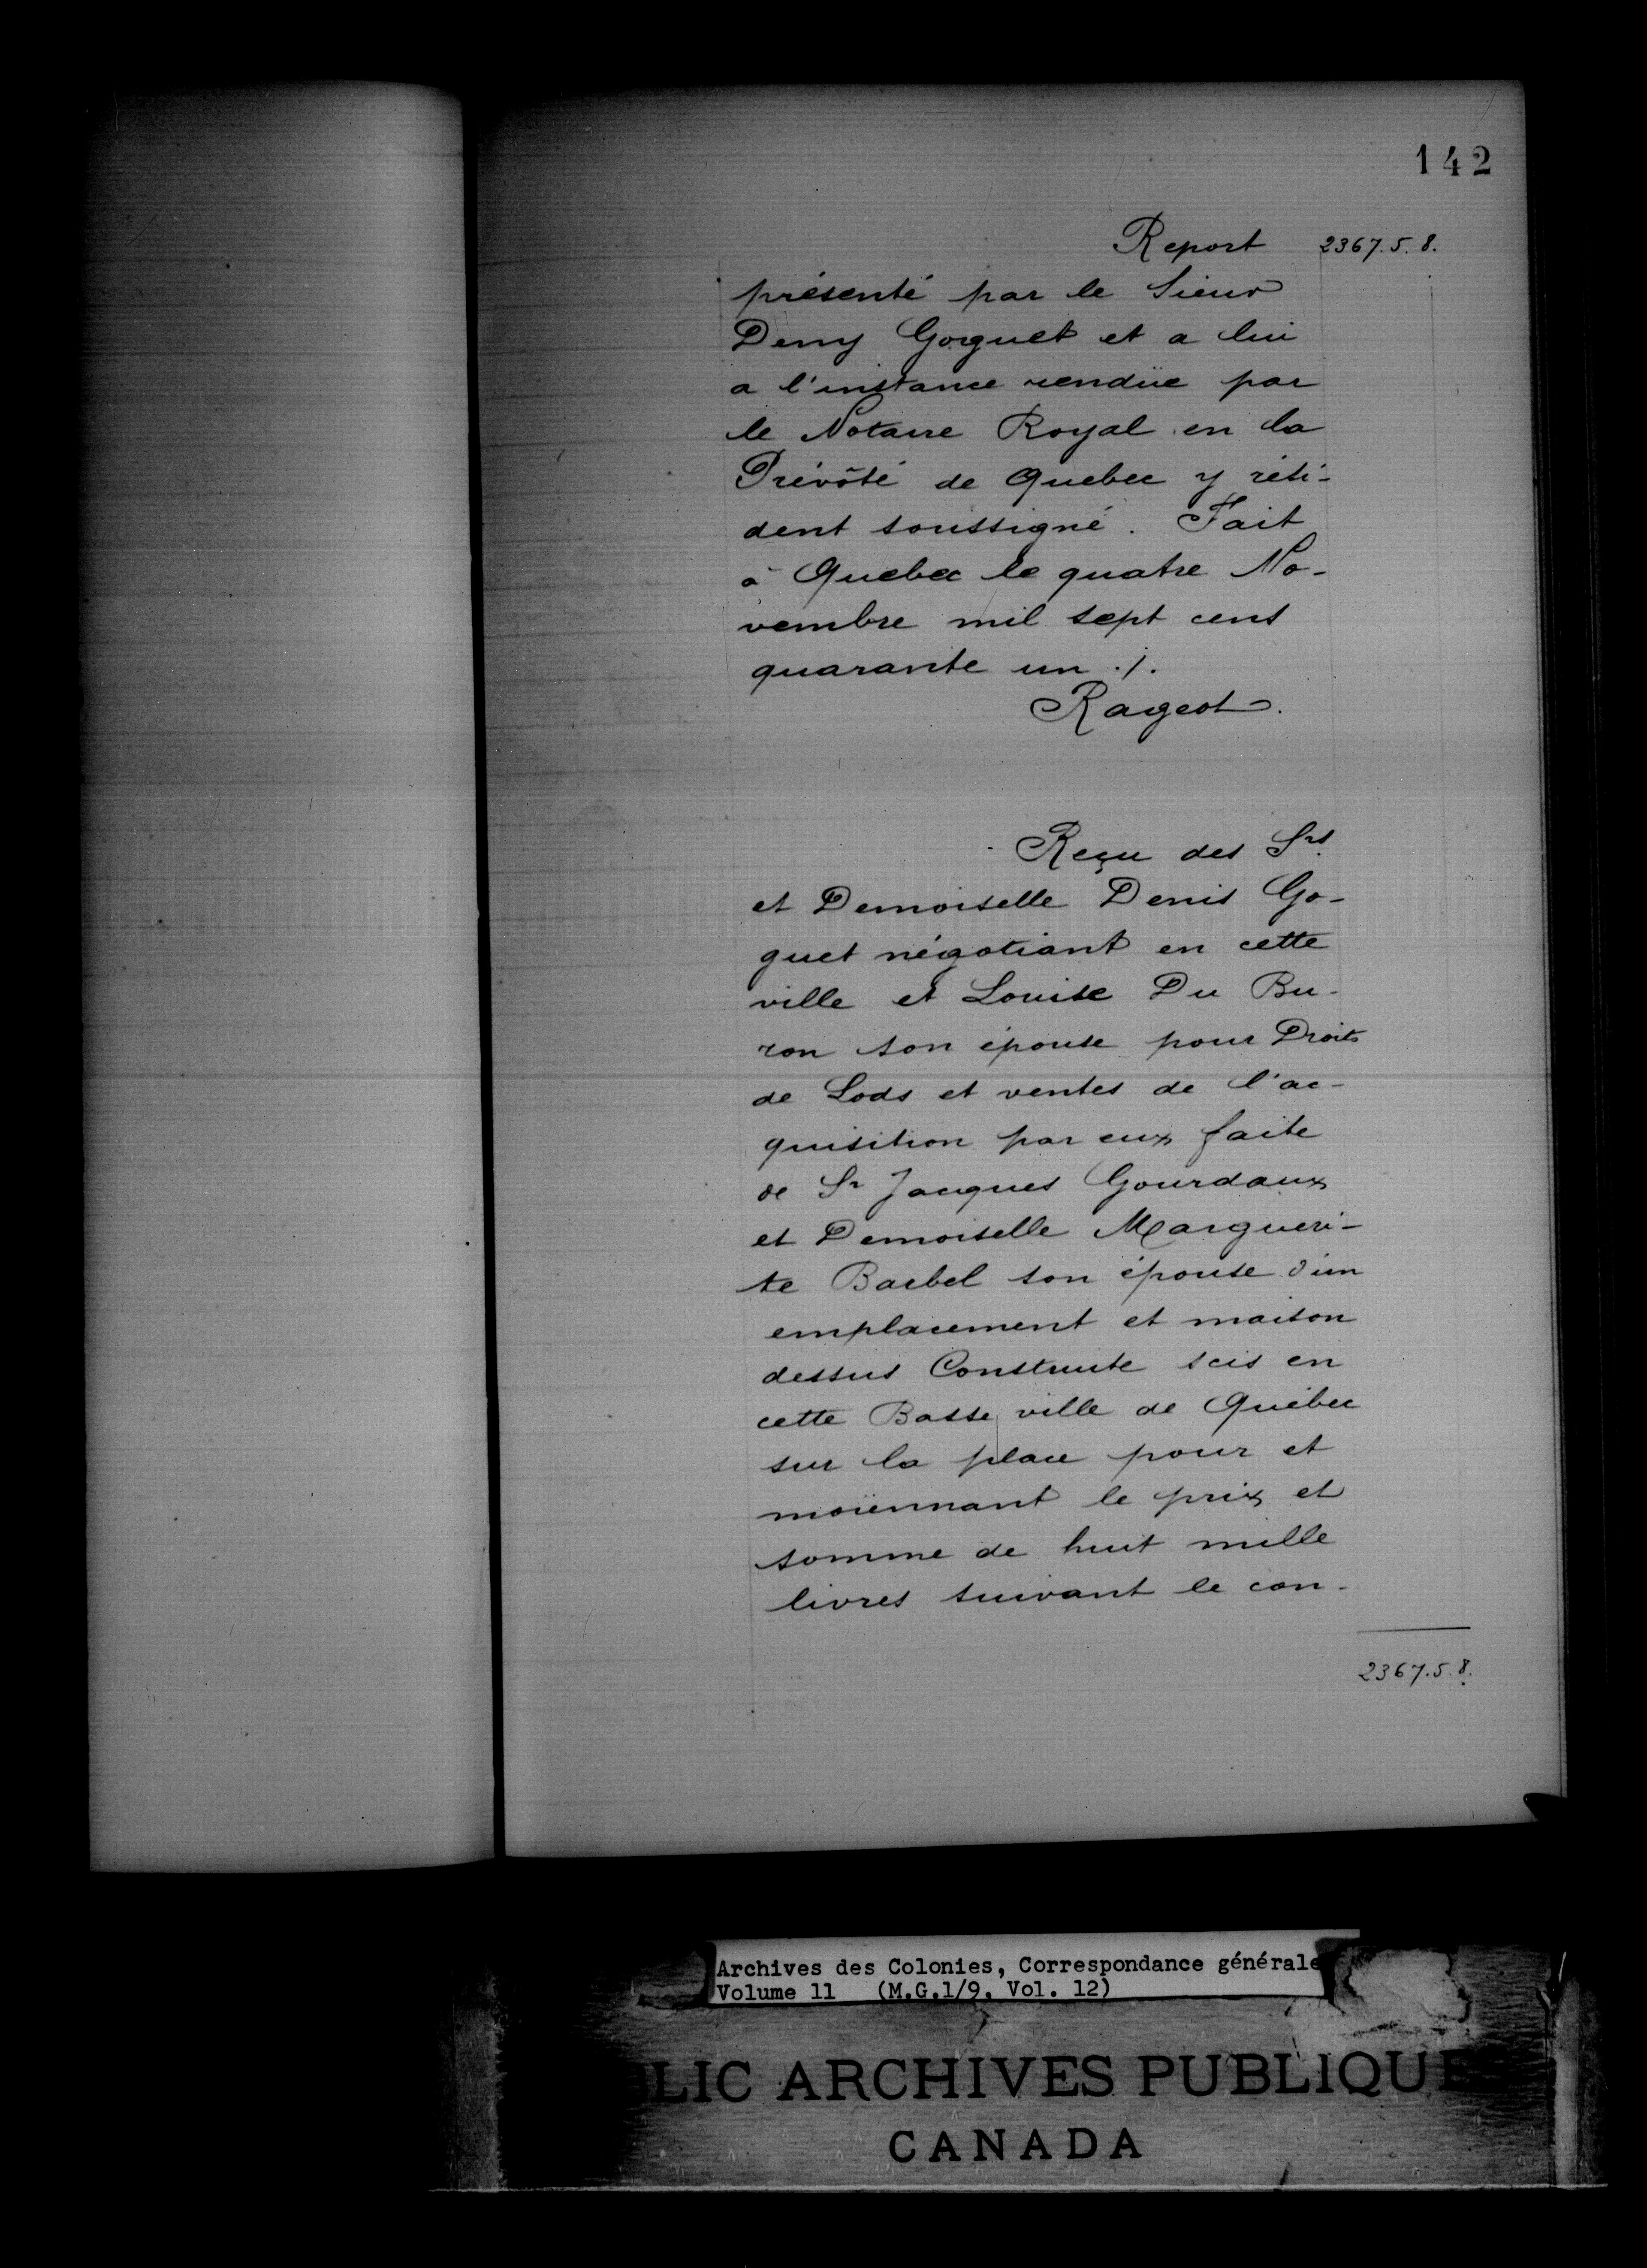 142
Report 2367.5.8.
présenté par le Sieur
Deny Goguet et a lui
a l'instance rendüe par
le Notaire Royal en la
Prévôté de Quebec y rési-
dent soussigné. Fait
à Quebec le quatre No-
vembre mil sept cens
quarante un ./.
Rageot.
Reçu des Srs
et Demoiselle Denis Go-
guet négotiant en cette
ville et Louise Du Bu-
ron son épouse pour Droits
de Lods et ventes de l'ac-
quisition par eux faite
de Sr Jacques Gourdaux
et Demoiselle Margueri-
te Barbel son épouse d'un
emplacement et maison
dessus Construite scis en
cette Basse ville de Québec
sur la place pour et
moiennant le prix et
somme de huit mille
livres suivant le con-
2367.5.8.
Archives des Colonies, Correspondance générale
Volume 11 (M.G.1/9, Vol. 12)
LIC ARCHIVES PUBLIQUE
CANADA